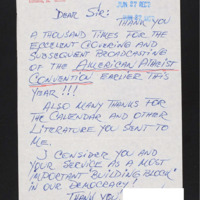 DEAR SIR:
THANK YOU
A THOUSAND TIMES FOR THE
EXCELLENT COVERING AND
SUBSEQUENT BROADCASTING
OF THE AMERICAN ATHEIST
CONVENTION EARLIER THIS
YEAR!!!
ALSO MANY THANKS FOR
THE CALENDAR AND OTHER
LITERATURE YOU SENT TO
ME.
I CONSIDER YOU AND
YOUR SERVICE AS A MOST
IMPORTANT "BUILDING BLOCK"
IN OUR DEMOCRACY!
THANK YOU